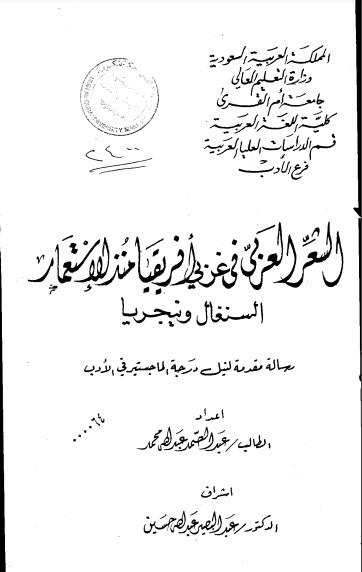 المملكة العربية السعودية
وزارة التعليم العالي
جامعة أم القرى
كلية اللغة العربية
قسم الدراسات العليا العربية
فرع الأدب
٢٤٠٠
الشعر العربي في غربي أفريقيا منذ الاستعمار
السنغال ونيجريا
رسالة مقدمة لنيل درجة الماجستير في الأدب
اعداد
الطالب / عبد الصمد عبد الله محمد
٠٠٠٠٦٤
اشراف
الدكتور / عبد البصير عبد الله حسين